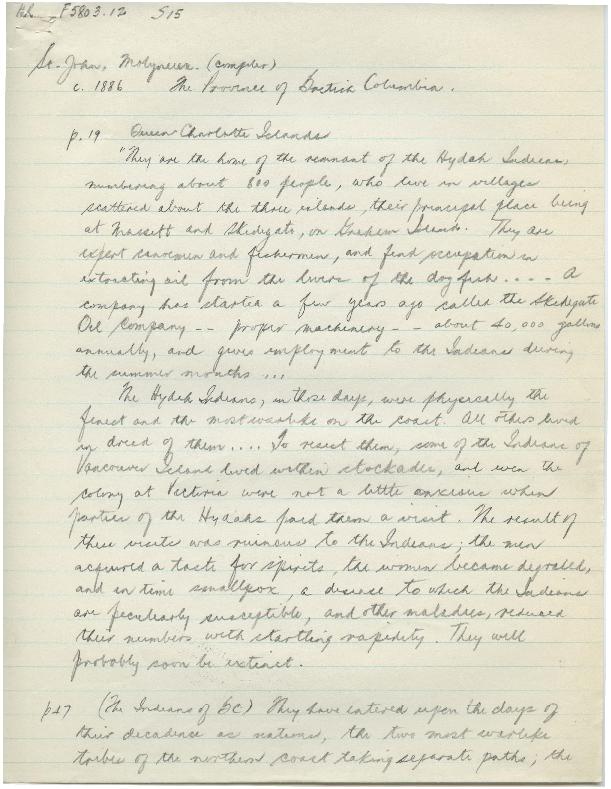 F5803.12 S15
St. John, Molyneux. (compiler)
c. 1886 The Province of British Columbia.
p. 19 Queen Charlotte Islands
"They are the home of the remnant of the Hydah Indians,
numbering about 800 people, who live in villages
scattered about the three islands, their principal place being
at Massett and Skedegate, on Graham Island. They are
expert canoemen and fishermen, and find occupation in
extracting oil from the livers of the dog fish .... A
company has started a few years ago called the Skidegate
Oil Company -- proper machinery -- about 40,000 gallons
annually, and gives employment to the Indians during
the summer months ...
The Hydah Indians, in those days, were physically the
finest and the most warlike on the coast. All others lived
in dread of them .... To resist them, some of the Indians of
Vancouver Island lived within stockades, and even the
colony at Victoria were not a little anxious when
parties of the Hydahs paid them a visit. The result of
these visits was ruinous to the Indians; the men
acquired a taste for spirits, the women became degraded,
and in time smallpox, a disease to which the Indians
are peculiarly susceptible, and other maladies, reduced
their numbers with startling rapidity. They will
probably soon be extinct.
p47 (The Indians of BC) They have entered upon the days of
their decadence as nations, the two most warlike
tribes of the northern coast taking separate paths; the